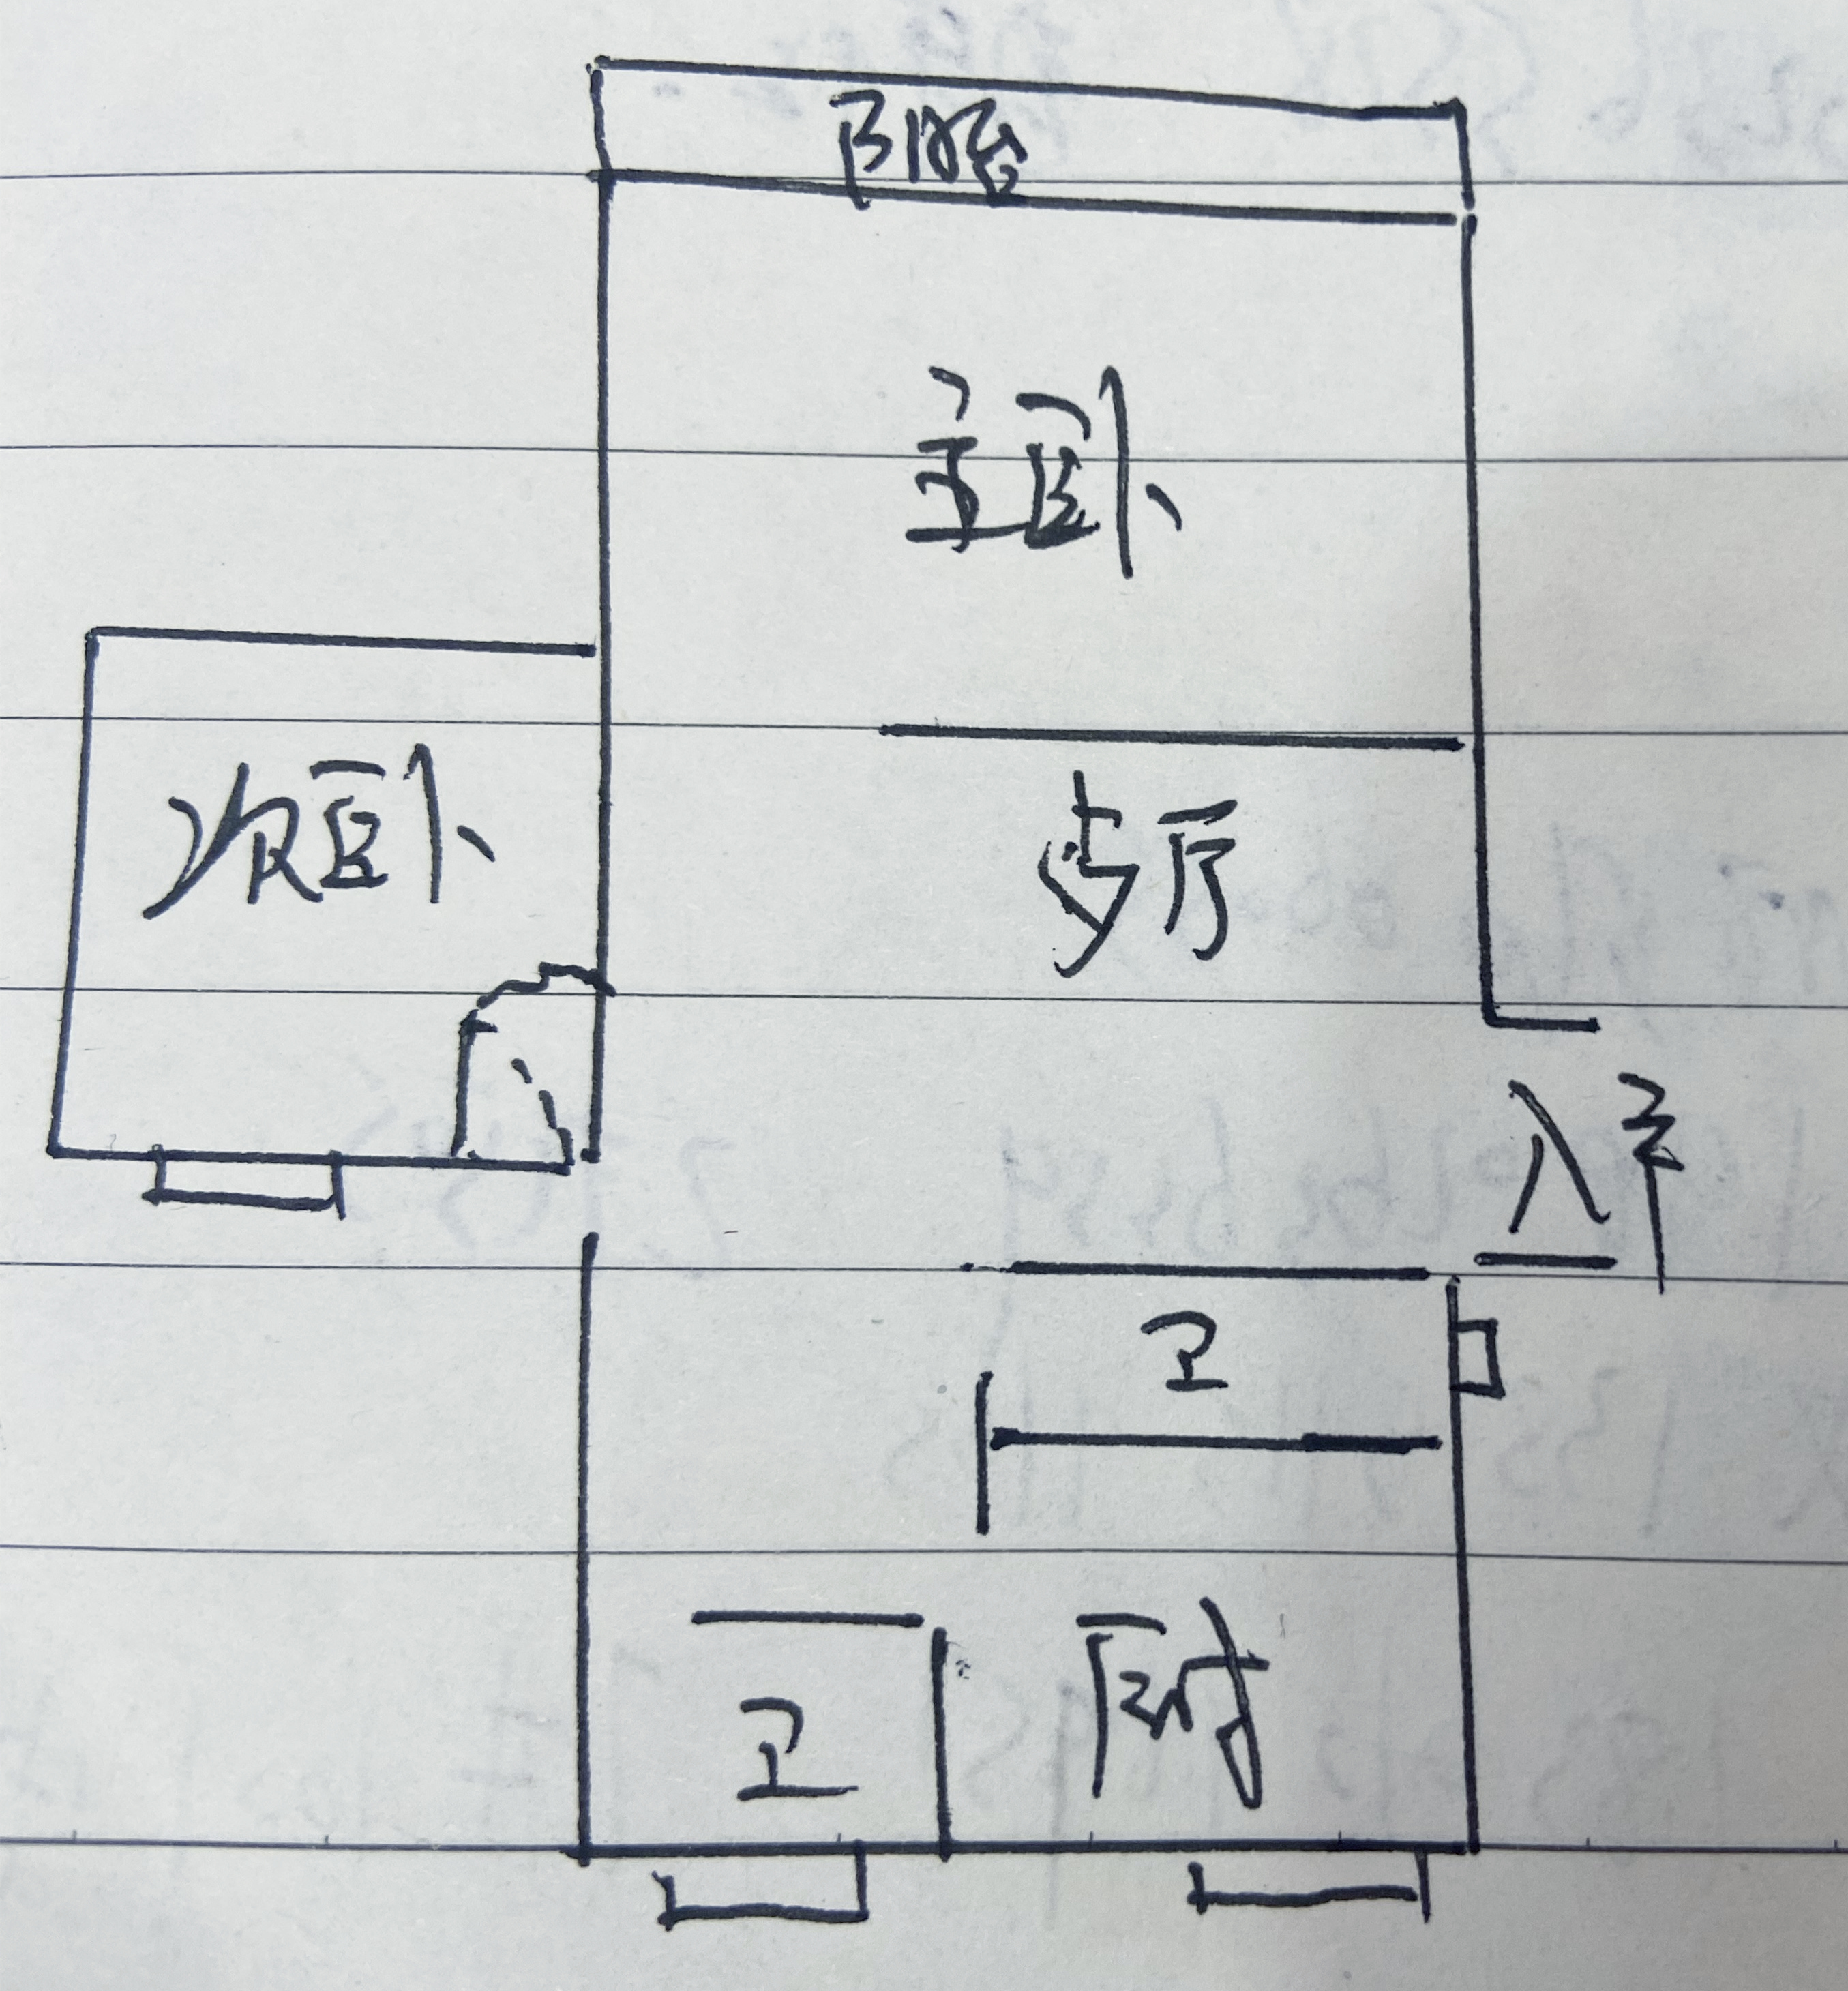 阳台
主卧
次卧
步厅
入户
卫
卫
厨